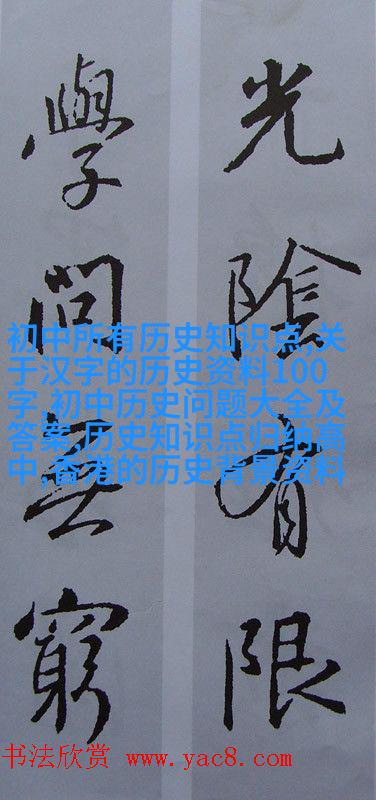 光陰有限
學問無窮
初中所有历史知识点,关
于汉字的历史资料100
字,初中历史问题大全及
答案,历史知识点归纳高
中,香港的历史背景资料
书法欣赏 www.yac8.com